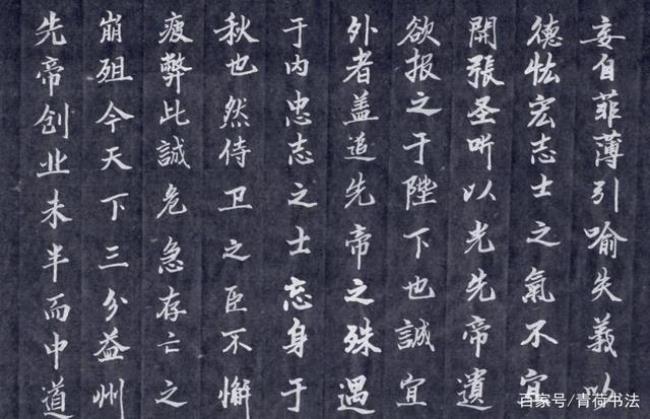 先帝创业未半而中道
崩殂今天下三分益州
疲弊此誠危急存亡之
秋也然侍卫之臣不懈
于内忠志之士忘身于
外者盖追先帝之殊遇
欲报之于陛下也誠宜
開張圣听以光先帝遺
德恢宏志士之氣不宜
妄自菲薄引喻失義以
百家号/青荷书法